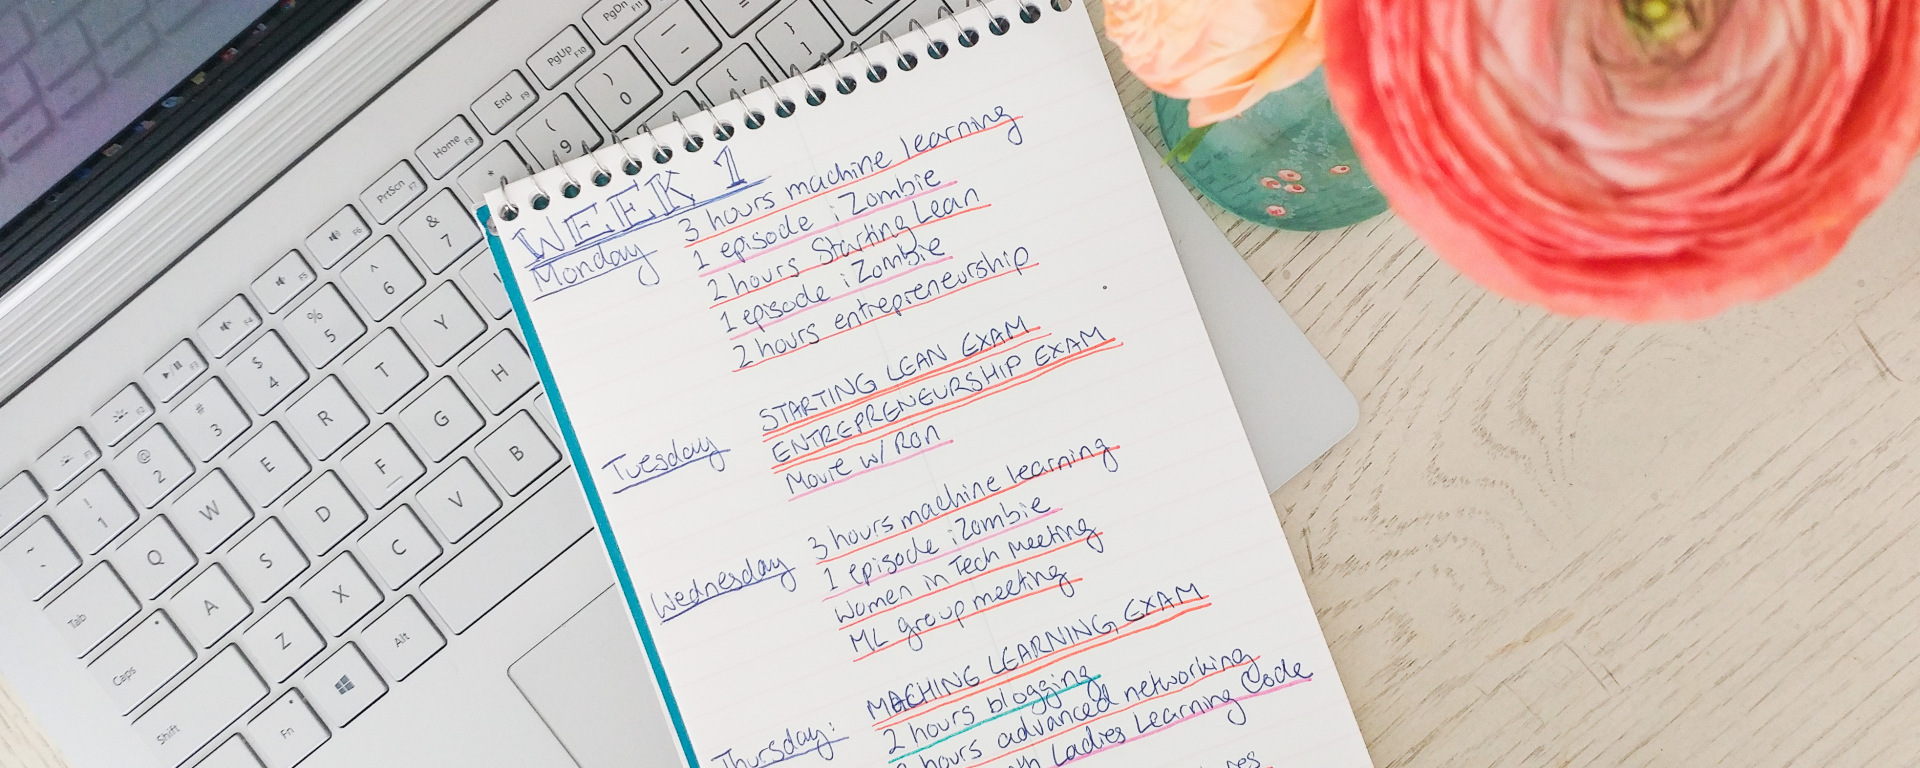 WEEK 1
Monday 3 hours machine learning
1 episode iZombie
2 hours Starting Lean
1 episode iZombie
2 hours entrepreneurship
Tuesday STARTING LEAN EXAM
ENTREPRENEURSHIP EXAM
Movie w/ Ron
Wednesday 3 hours machine learning
1 episode iZombie
Women in Tech Meeting
ML group meeting
Thursday: MACHING LEARNING EXAM
2 hours blogging
hours advanced networking
Ladies Learning Code
PgDn F11
PgUp F10
End F9
Home F8
PrtScn F7
F6
F5
F4
F3
F2
F1
~ ! 1 @ 2 # 3 $ 4 % 5 ^ 6 & 7 * ( 9 ) 0
Tab Q W E R T Y
Caps A S D F G H
Shift Z X C V B
Fn Alt